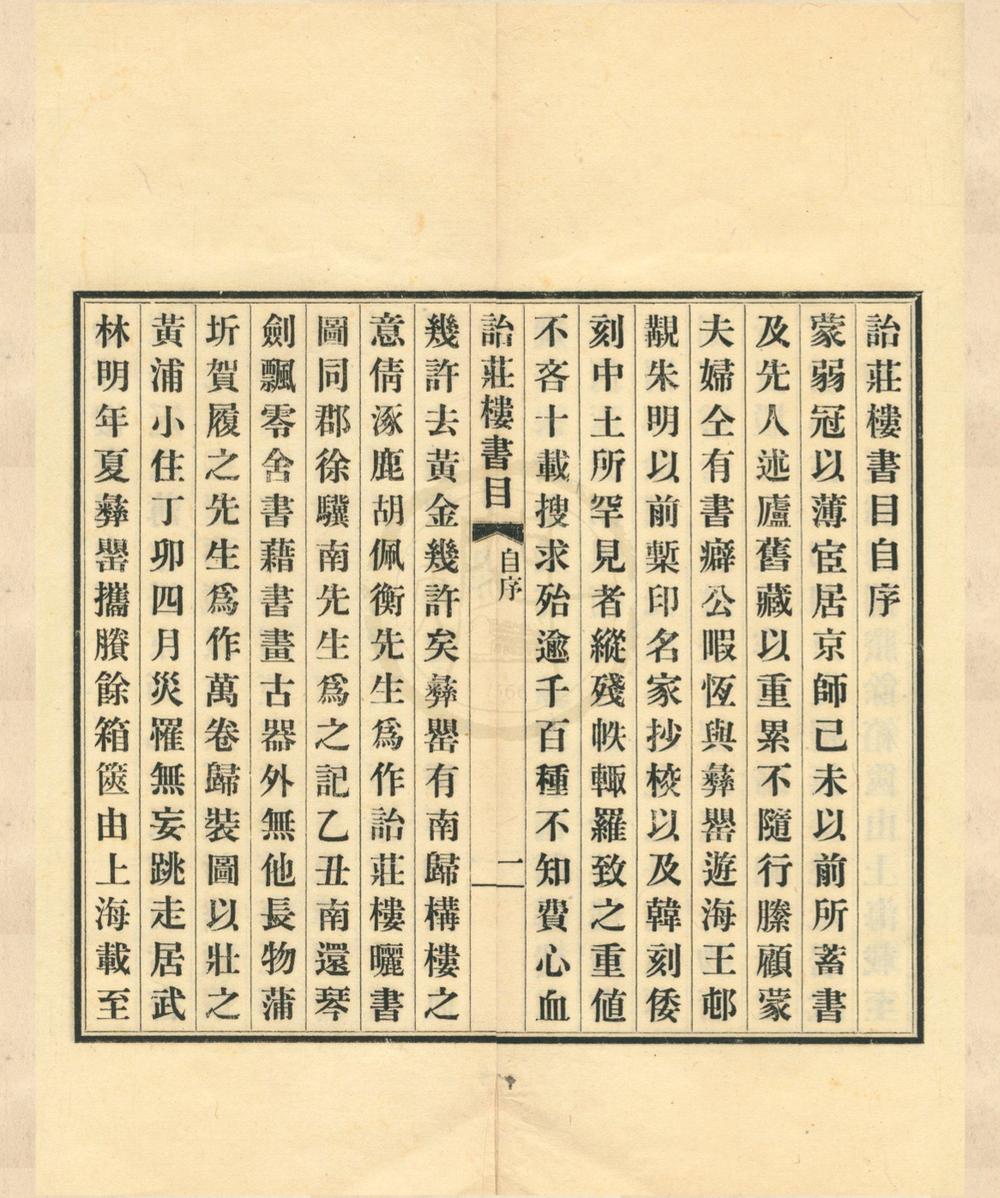 詒莊樓書目自序
蒙弱冠以薄宦居京師己未以前所蓄書
及先人述廬舊藏以重累不隨行縢顧蒙
夫婦仝有書癖公暇恆與彝罍遊海王邨
覯朱明以前槧印名家抄校以及韓刻倭
刻中土所罕見者縱殘帙輙羅致之重値
不吝十載搜求殆逾千百種不知費心血
詒莊樓書目
自序
二
幾許去黃金幾許矣彝罍有南歸構樓之
意倩涿鹿胡佩衡先生爲作詒莊樓曬書
圖同郡徐驥南先生爲之記乙丑南還琴
劍飄零舍書藉書畫古器外無他長物蒲
圻賀履之先生爲作萬卷歸裝圖以壯之
黃浦小住丁卯四月災罹無妄跳走居武
林明年夏彝罍攜賸餘箱篋由上海載至